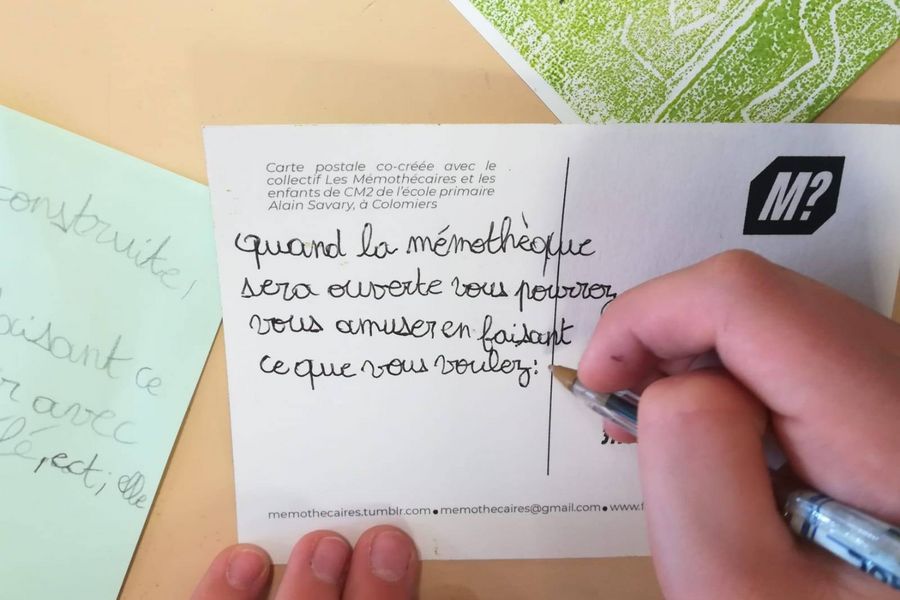 Carte postale co-créée avec le
collectif Les Mémothécaires et les
enfants de CM2 de l'école primaire
Alain Savary, à Colomiers
M?
quand la mémothèque
sera ouverte vous pourrez
vous amuser en faisant
ce que vous voulez:
memothecaires.tumblr.com • memothecaires@gmail.com • www.f
construite,
faisant ce
avec
, ect, elle